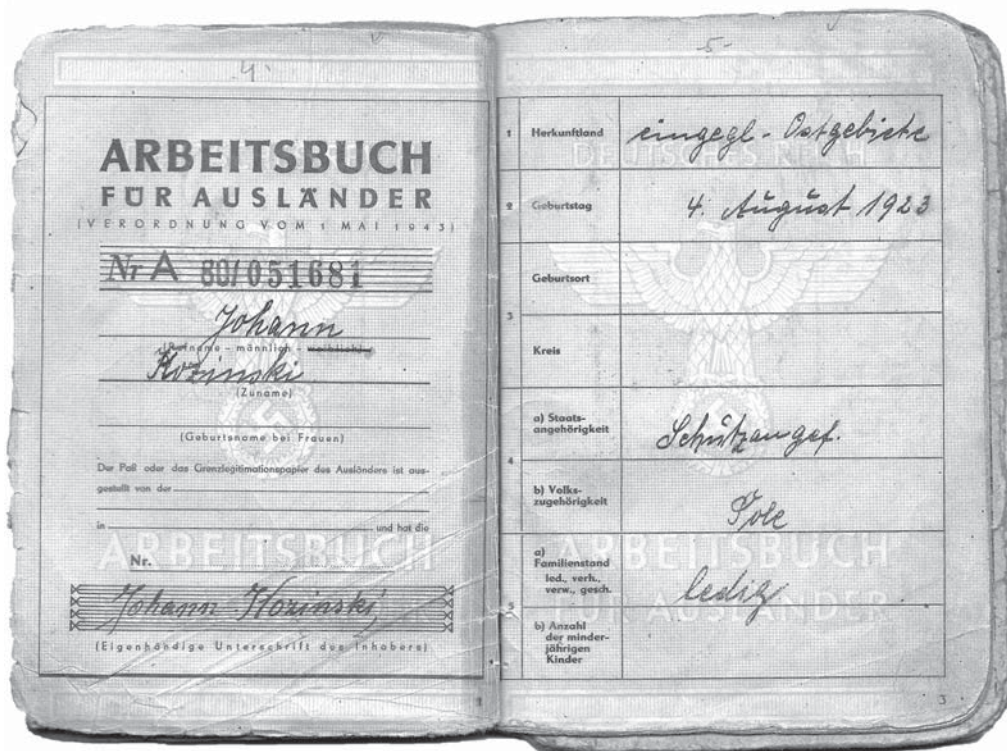 4.
ARBEITSBUCH
FÜR AUSLÄNDER
(VERORDNUNG VOM 1 MAI 1943)
Nr A 80/051681
Johann
(Rufname - männlich - weiblich)
Kozinski
(Zuname)
(Geburtsname bei Frauen)
Der Paß oder das Grenzlegitimationspapier des Ausländers ist aus-
gestellt von der
in und hat die
ARBEITSBUCH
Nr.
Johann Kozinski
(Eigenhändige Unterschrift des Inhabers)
-5-
1 Herkunftland eingegl. - Ostgebiete
DEUTSCHES REICH
2 Geburtstag 4. August 1923
Geburtsort
3
Kreis
a) Staats-
angehörigkeit Schutzangeh.
4
b) Volks-
zugehörigkeit Pole
ARBEITSBUCH
a)
Familienstand
led., verh.,
verw., gesch. ledig
5
FÜR AUSLÄNDER
b) Anzahl
der minder-
jährigen
Kinder
3